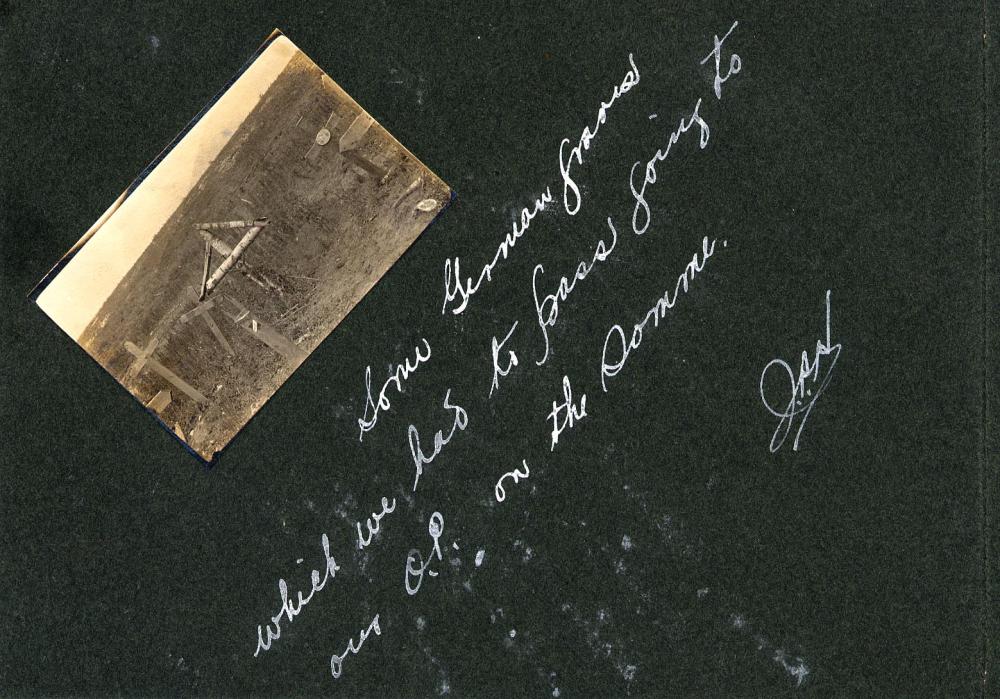 Some German graves
which we had to pass going to
our O.P. on the Somme.